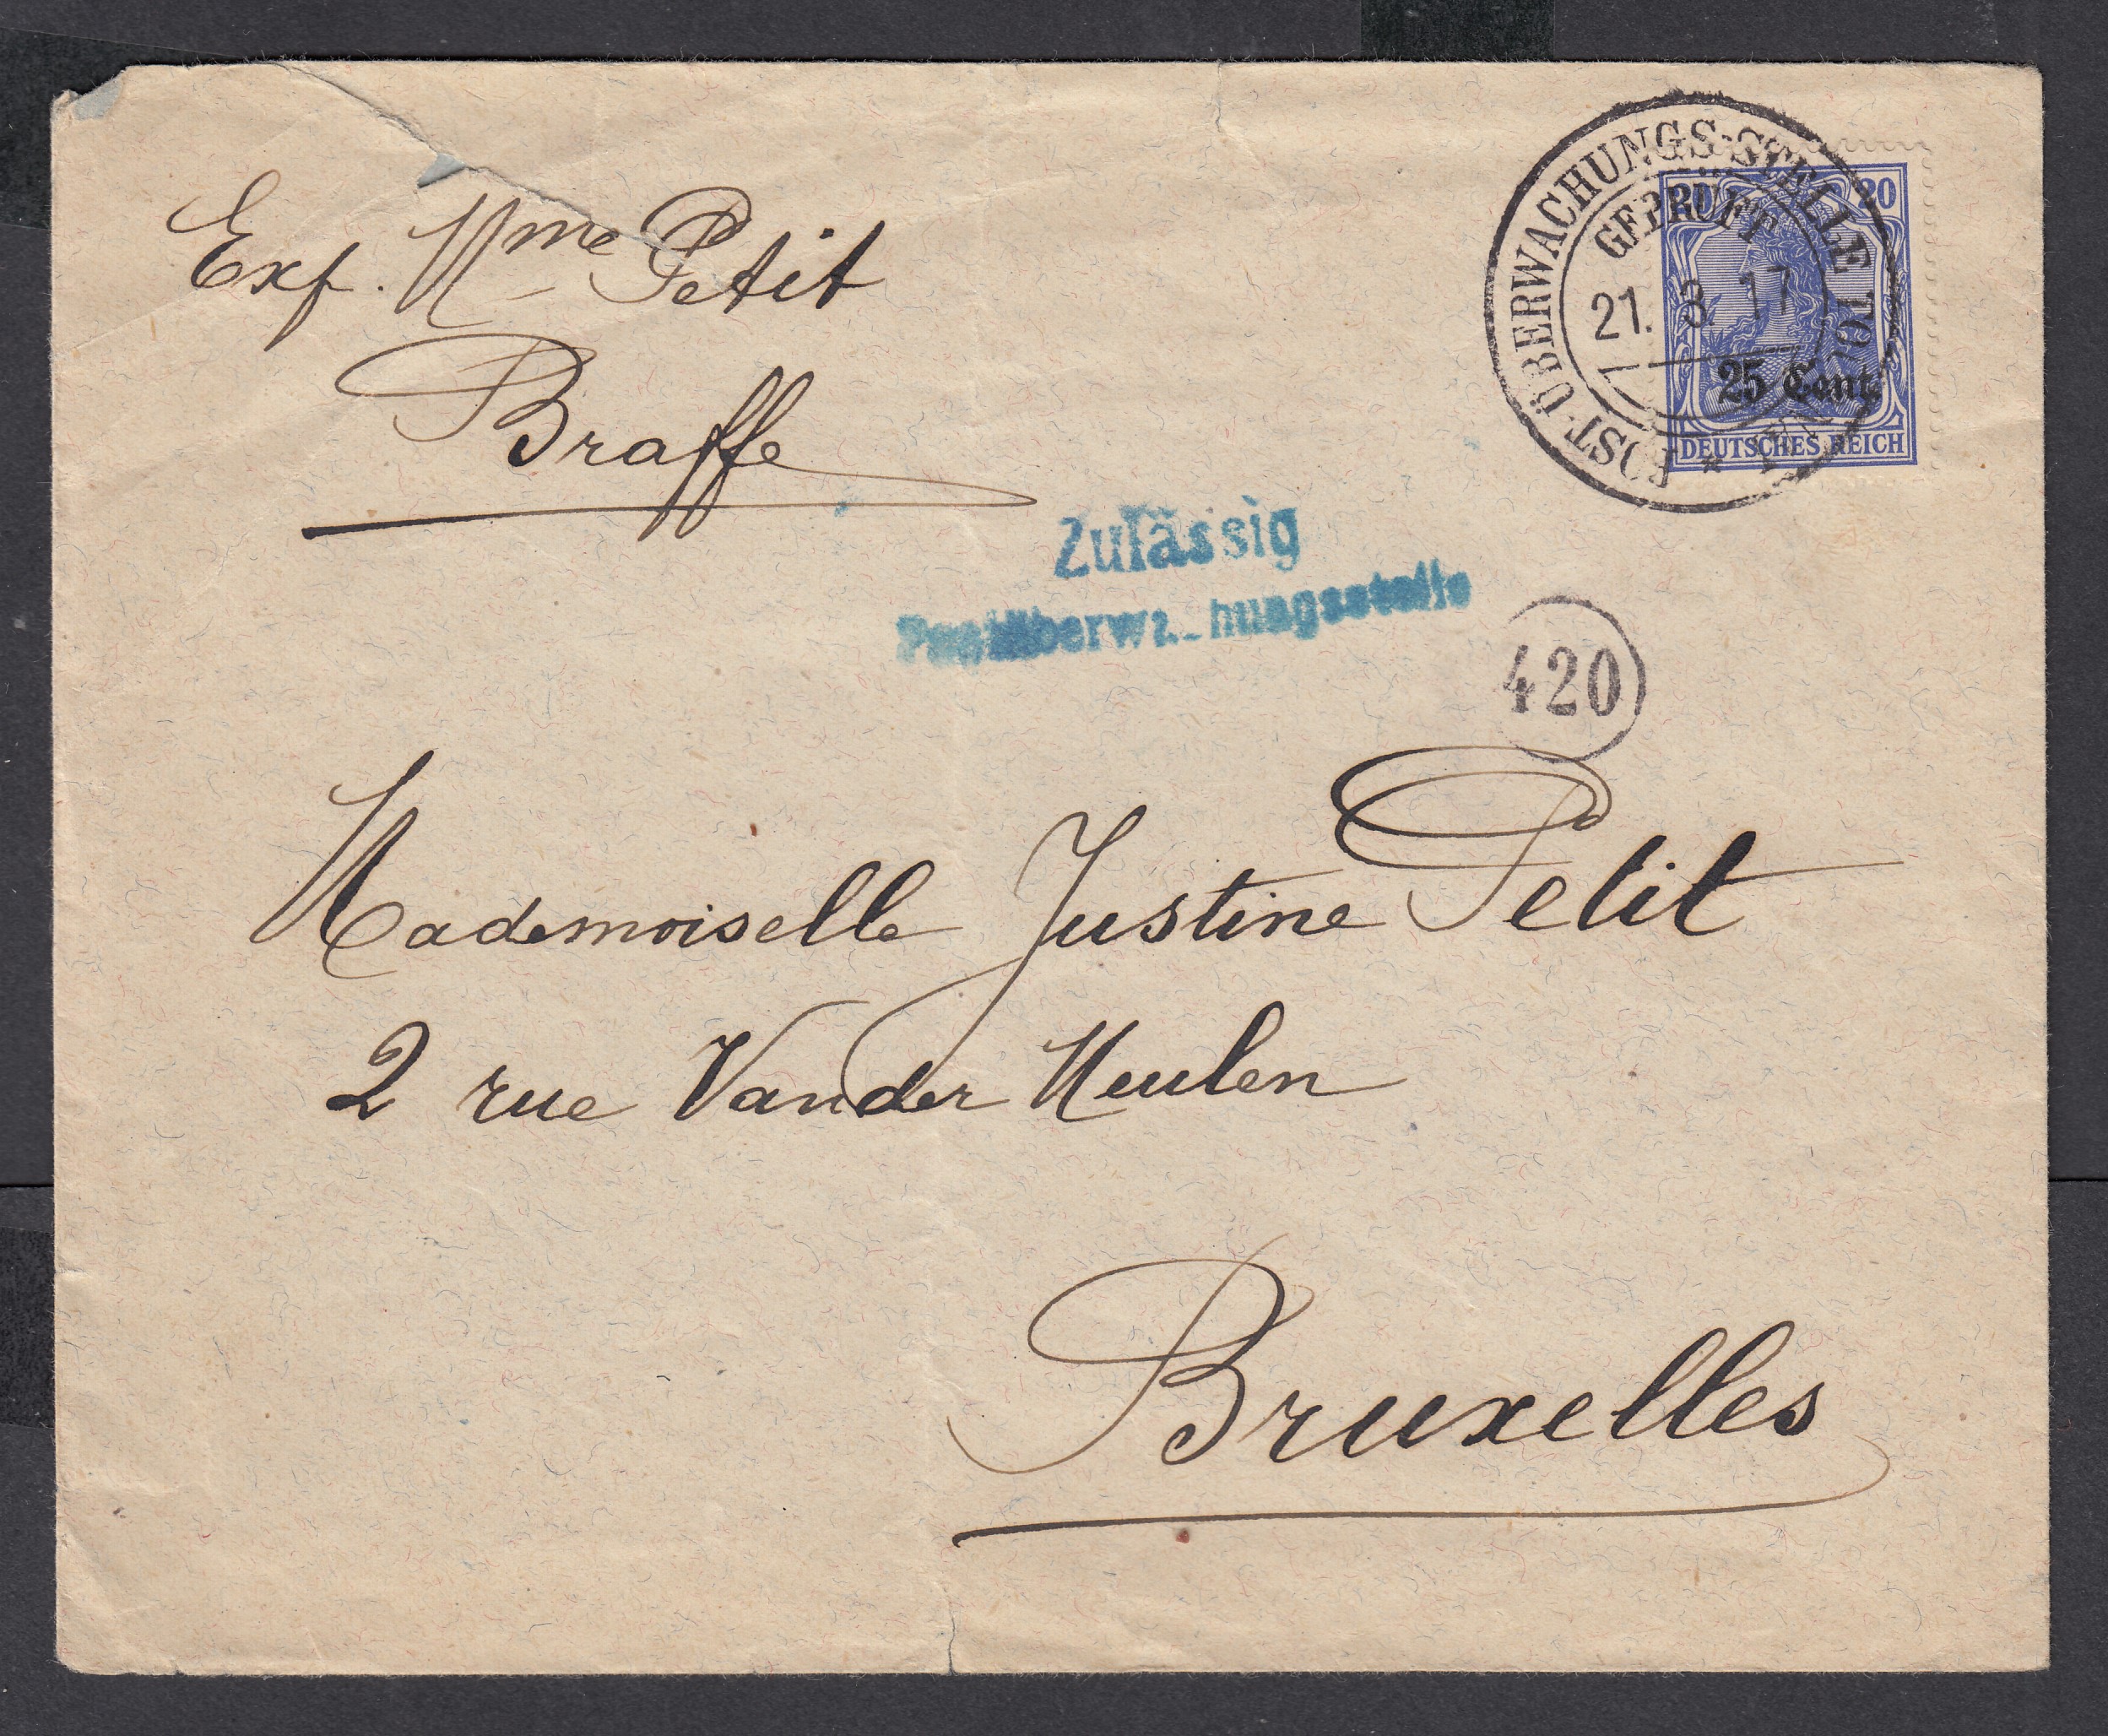 Exp. Mme Petit
Braffe
POST-ÜBERWACHUNGS-STELLE TOURNAI *
GEPRÜFT
21. 3. 17
20 20
25 Cent.
DEUTSCHES REICH
Zulässig
Postüberwachungsstelle
420
Mademoiselle Justine Petit
2 rue Vander Meulen
Bruxelles